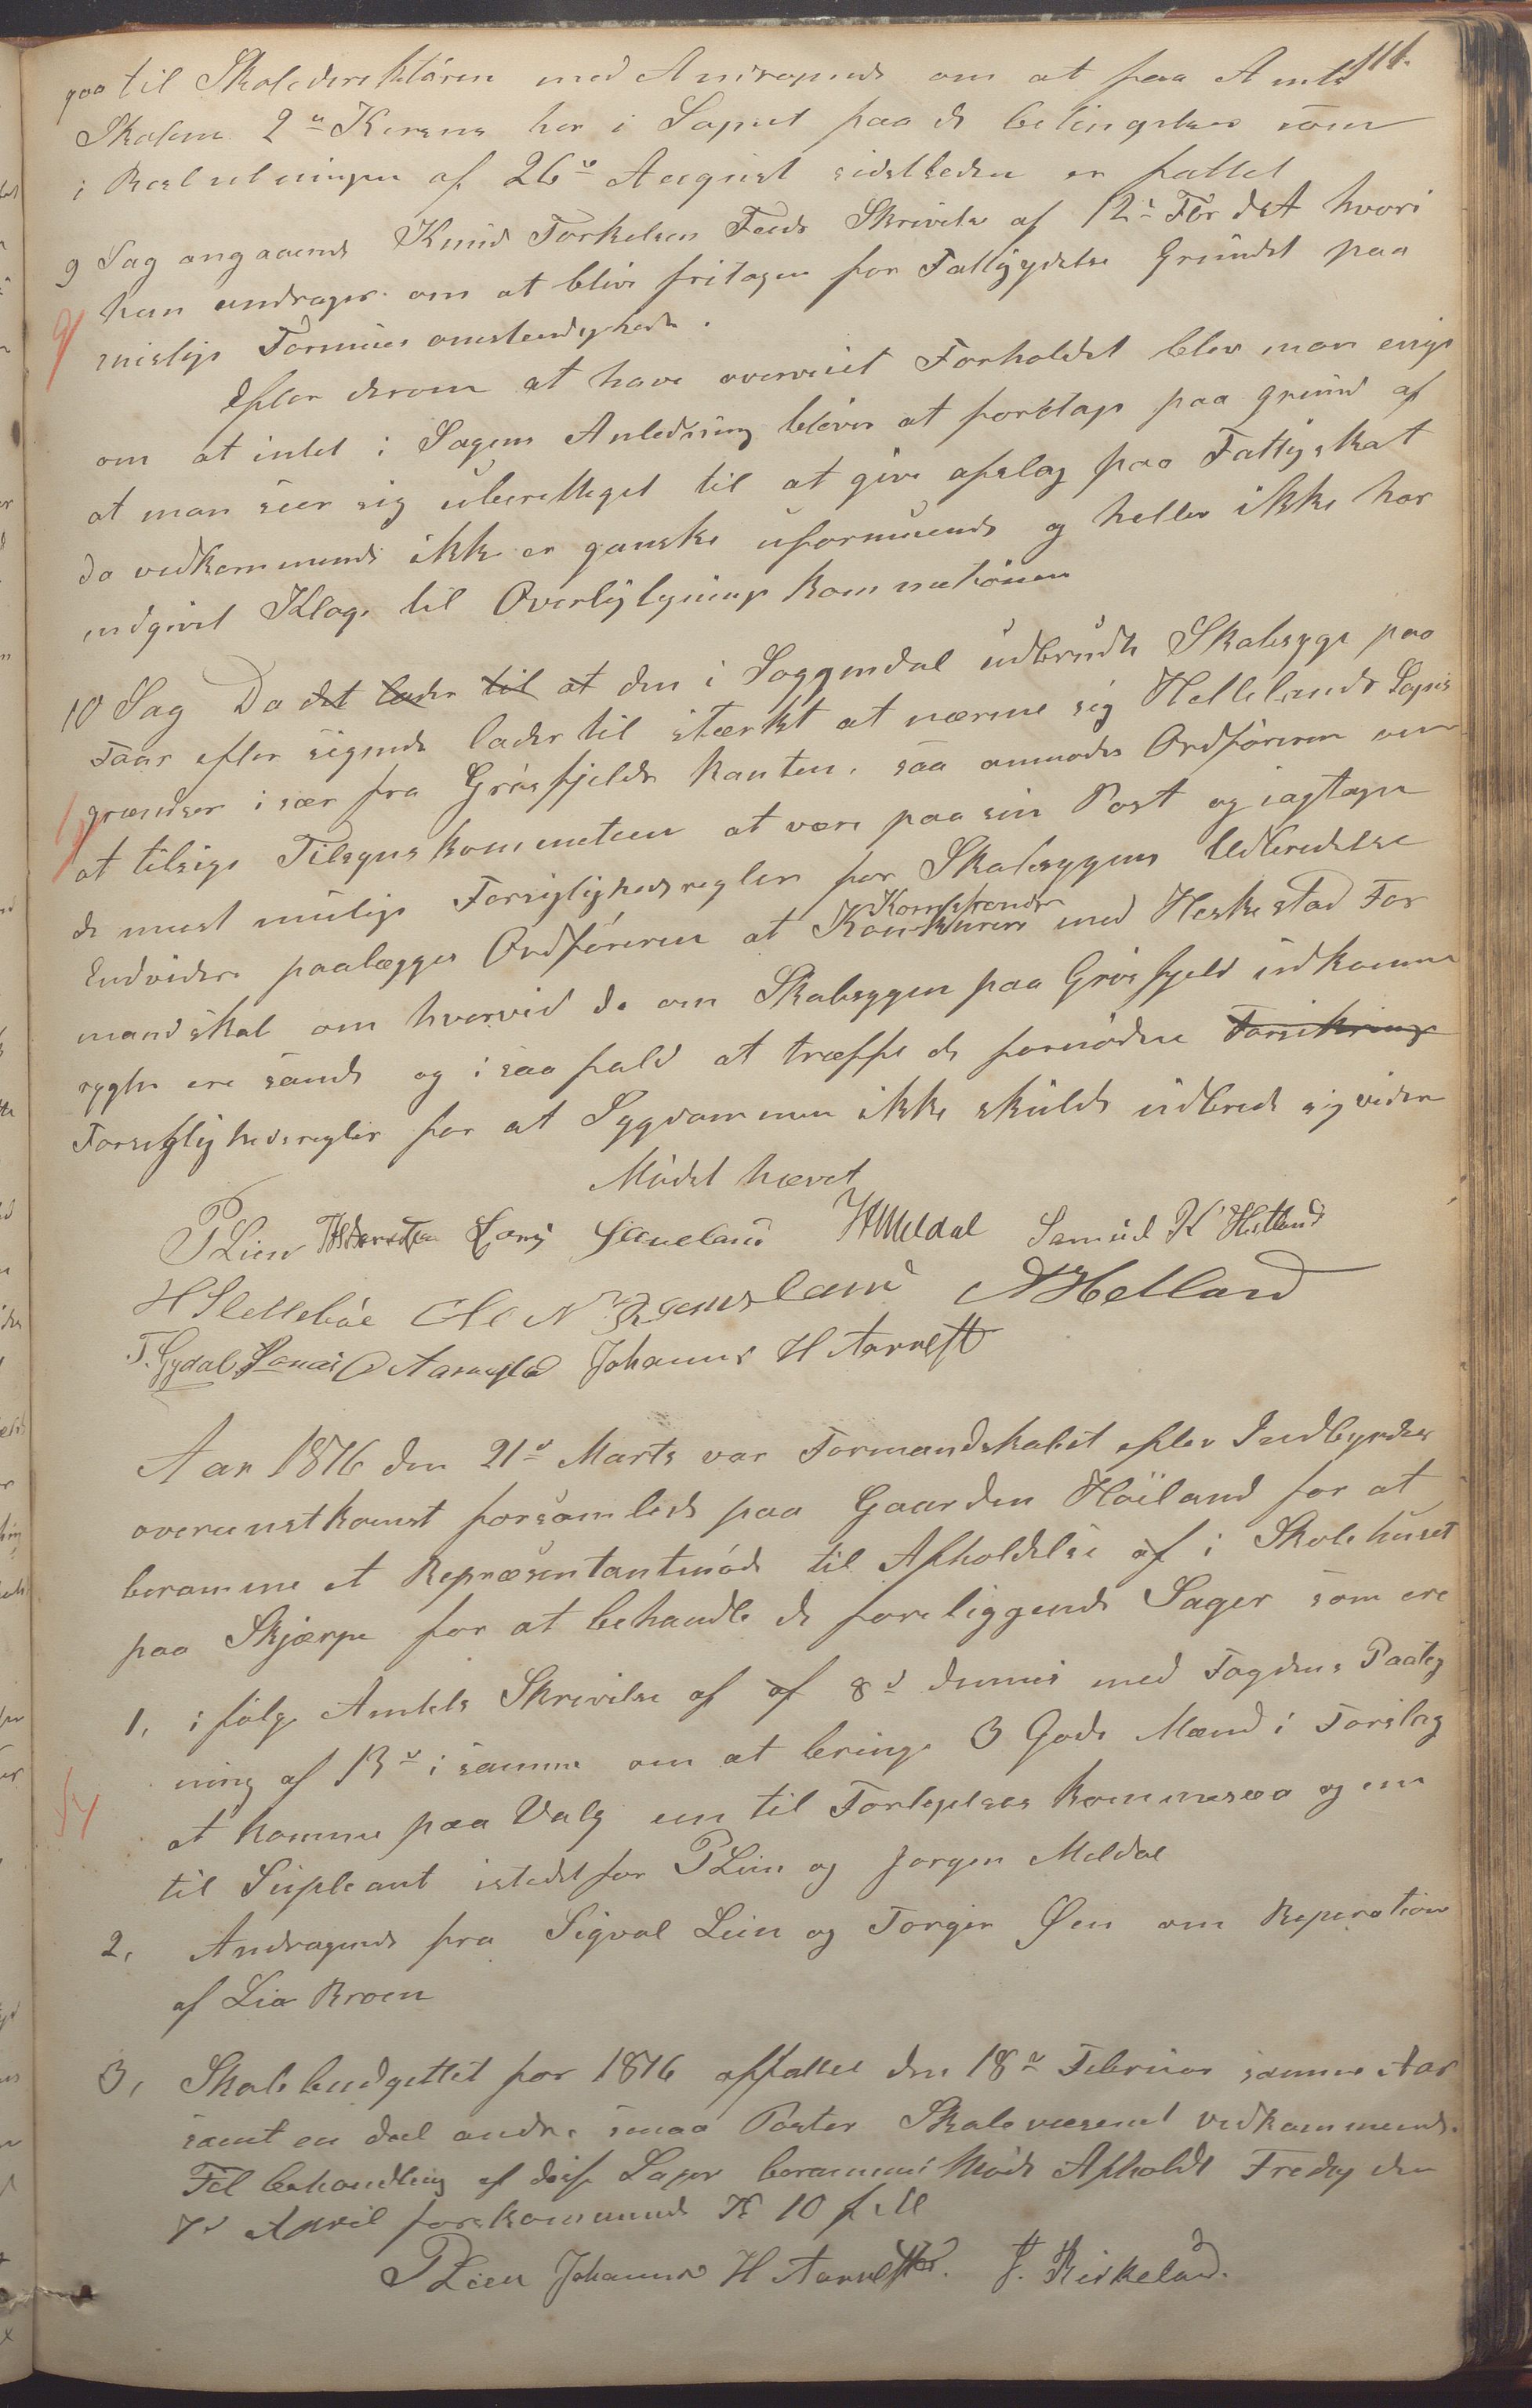 111.
gaa til Skoledirektören med Andragende om at faa Amts
Skolens 2den Kursus her i Sognet paa de betingelser som
i Beslutningen af 26de August sidstleden er fattet
9 Sag angaaende Knud Torkelsen Feeds Skrivelse af 12te Febr dA hvori
han andrager om at blive fritagen for Fattigydelse Grundet paa
mislige Formues omstendigheder.
Efter derom at have overveiet Forholdet blev man enige
om at intet i Sagens Anledning bliver at foretage paa grund af
at man seer sig uberettiget til at give afslag paa Fattigskat
da vedkommende ikke er ganske uformuende og heller ikke har
indgivet Klage til Overligningskommitionen
10 Sag Da det lader til at den i Soggendal udbrudte Skabsyge paa
Faar efter sigende lader til stærkt at nærme sig Hellelands Sogns
grændser i sær fra Grösfjelds kanten, saa anmodes Ordföreren om
at tilsige Tilsynskommeteen at være paa sin Post og iagtage
de mest mulige Forsigtighedsregler for Skabsygens Udbredelse
Korrsponder
Endvidere paalægges Ordföreren at Konkurere med Heskestad For
mandskab om hvorvid de om Skabsygen paa Grösfjeld udkomne
rygter ere sande og i saa fald at træffe de fornödne Forsikrings
Forsigtighedsregler for at Sygdommen ikke skulde udbrede sig videre
Mödet hævet
PLien Lars Skaeland HMeldal Samuel K Hetland
HSletteböe Ole N Ramsland AHelland
T. Gydal Jonas O Aarrestad Johannes H Aarrestad
Aar 1876 den 21de Marts var Formandskabet efter Indbyrdes
overenstkomst forsamlede paa Gaarden Höiland for at
beramme et Repræsentantmöde til Afholdelse af i Skolehuset
paa Skjærpe for at behandle de foreliggende Sager som ere
1, i fölge Amtets Skrivelse af af 8de dennes med Fogdens Paateg
ning af 13de i samme om at bringe 3 Gode Mænd i Forslag
at komme paa Valg en til Forligelses kommesær og en
til Supleant istedetfor PLien og Jorgen Meldal
2, Andragende fra Sigval Lien og Torger Øen om Reperation
af Lia Broen
3, Skolebudgettet for 1876 affattet den 18de Februar samme Aar
samt en deel andre smaa Poster Skolevæsenet vedkommende.
Til behandling af disse Sager berammes Möde Afholdt Fredag den
7de April forekommende Kl 10 f M
PLien Johannes H Aarrestad. J. Birkeland.